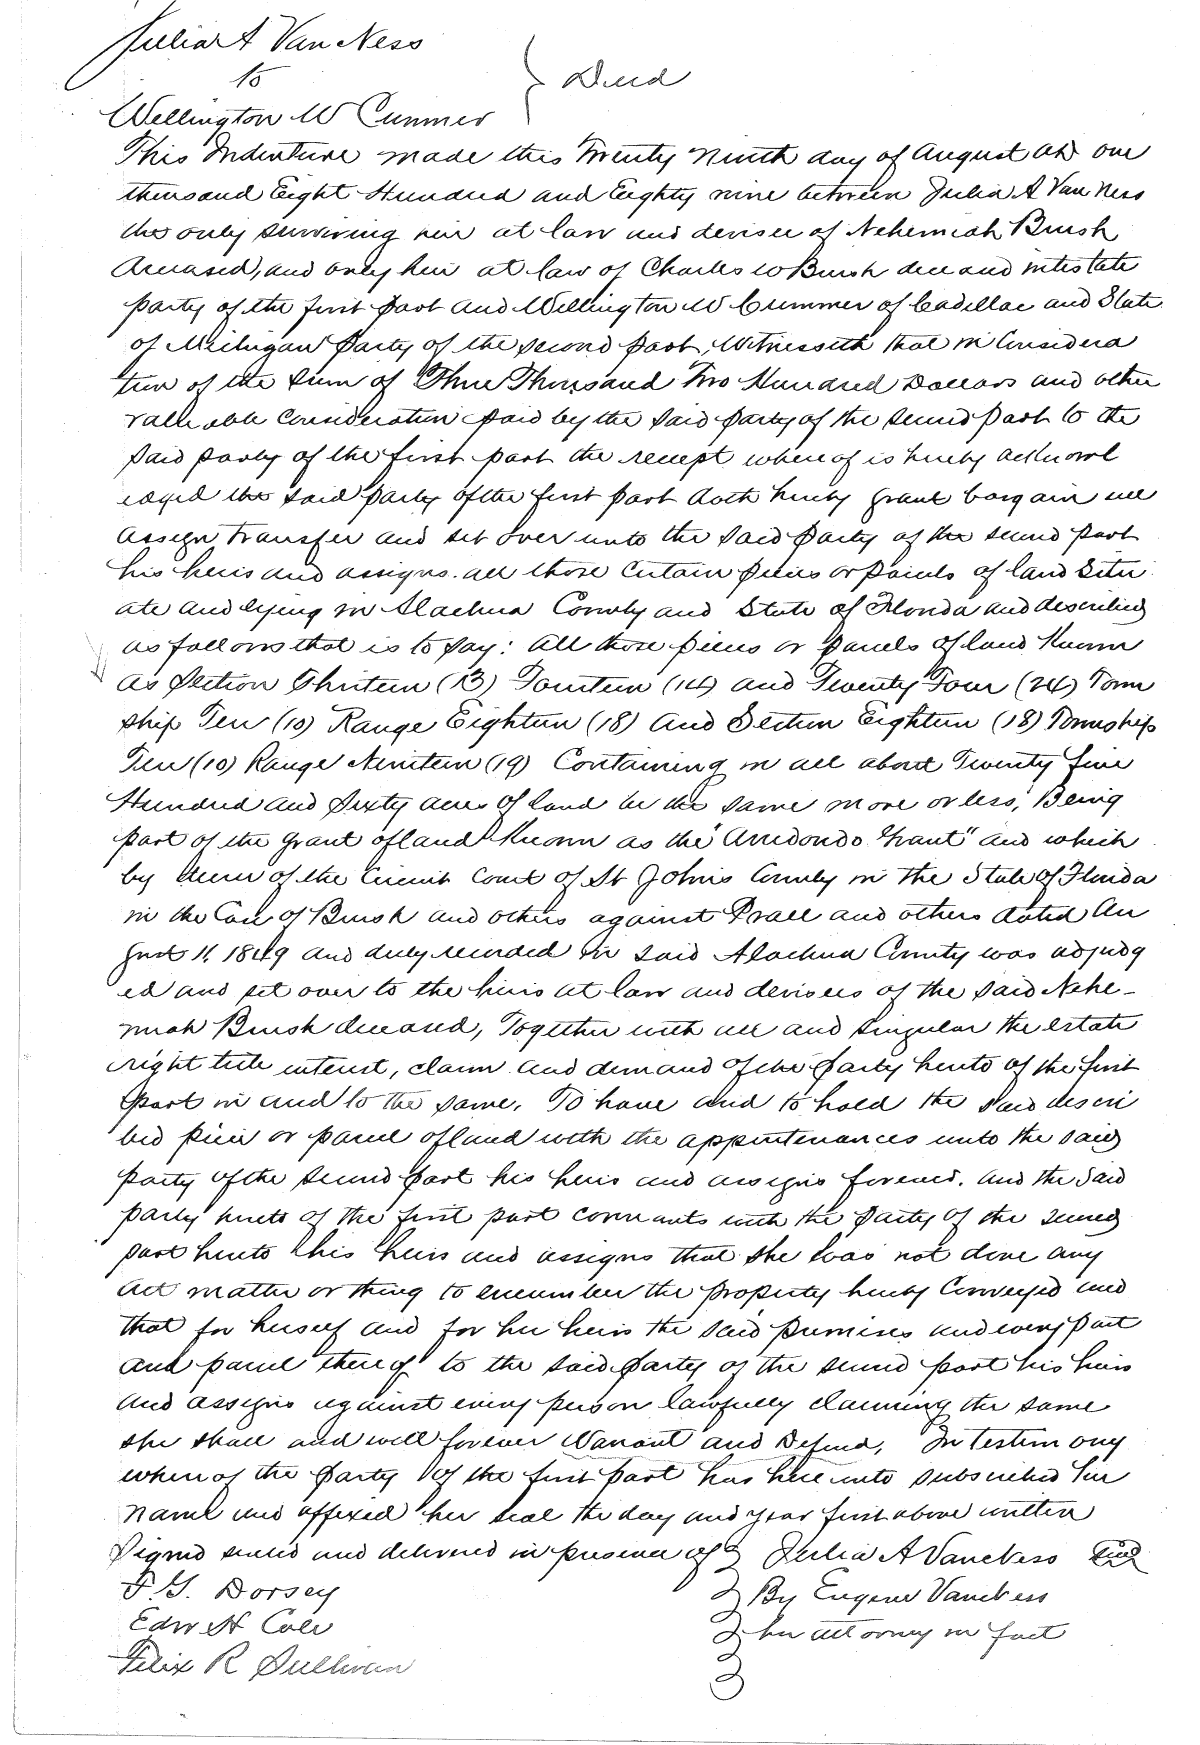 Julia A Van Ness
to } Deed
Wellington W Cummer
This Indenture made this Twenty Ninth day of August AD one
thousand Eight Hundred and Eighty nine between Julia A Van Ness
the only surviving heir at law and devisee of Nehemiah Brush
deceased, and only heir at law of Charles W Brush deceased intestate
party of the first part and Wellington W Cummer of Cadillac and State
of Michigan party of the second part, Witnesseth that in Considera
tion of the sum of Three Thousand Two Hundred Dollars and other
valuable Consideration paid by the said party of the second part to the
said party of the first part the receipt where of is hereby acknowl
edged the said party of the first part doth hereby grant bargain sell
assign transfer and set over unto the said party of the second part
his heirs and assigns. all those certain pieces or parcels of land Situ
ate and lying in Alachua County and State of Florida and described
as follows that is to say: All those pieces or parcels of land Known
as Section Thirteen (13) Fourteen (14) and Twenty Four (24) Town
ship Ten (10) Range Eighteen (18) and Section Eighteen (18) Township
Ten (10) Range Nineteen (19) Containing in all about Twenty five
Hundred and Sixty acres of land be the same more or less, Being
part of the grant of land Known as the "Arredondo Grant" and which
by decree of the Circuit Court of St Johns County in the State of Florida
in the Case of Brush and others against Prall and others dated Au
gust 11, 1849 and duly recorded in said Alachua County was adjudg
ed and set over to the heirs at law and devisees of the said Nehe-
miah Brush deceased, Together with all and singular the estate
right title interest, claim and demand of the party hereto of the first
part in and to the same. To have and to hold the said descri
bed piece or parcel of land with the appurtenances unto the said
party of the second part his heirs and assigns forever. And the said
party hereto of the first part convenants with the party of the second
part hereto his heirs and assigns that she has not done any
act matter or thing to encumber the property hereby Conveyed and
that for herself and for her heirs the said premises and every part
and parcel thereof to the said party of the second part his heirs
and assigns against every person lawfully claiming the same
she shall and will forever Warrant and Defend, In Testimony
where of the party of the first part has here unto subscribed her
name and affixed her seal the day and year first above written
Signed sealed and delivered in presence of } Julia A VanNess Seal
F. G. Dorsey } By Eugene VanNess
Edw H Cole } her attorney in fact
Felix R Sullivan